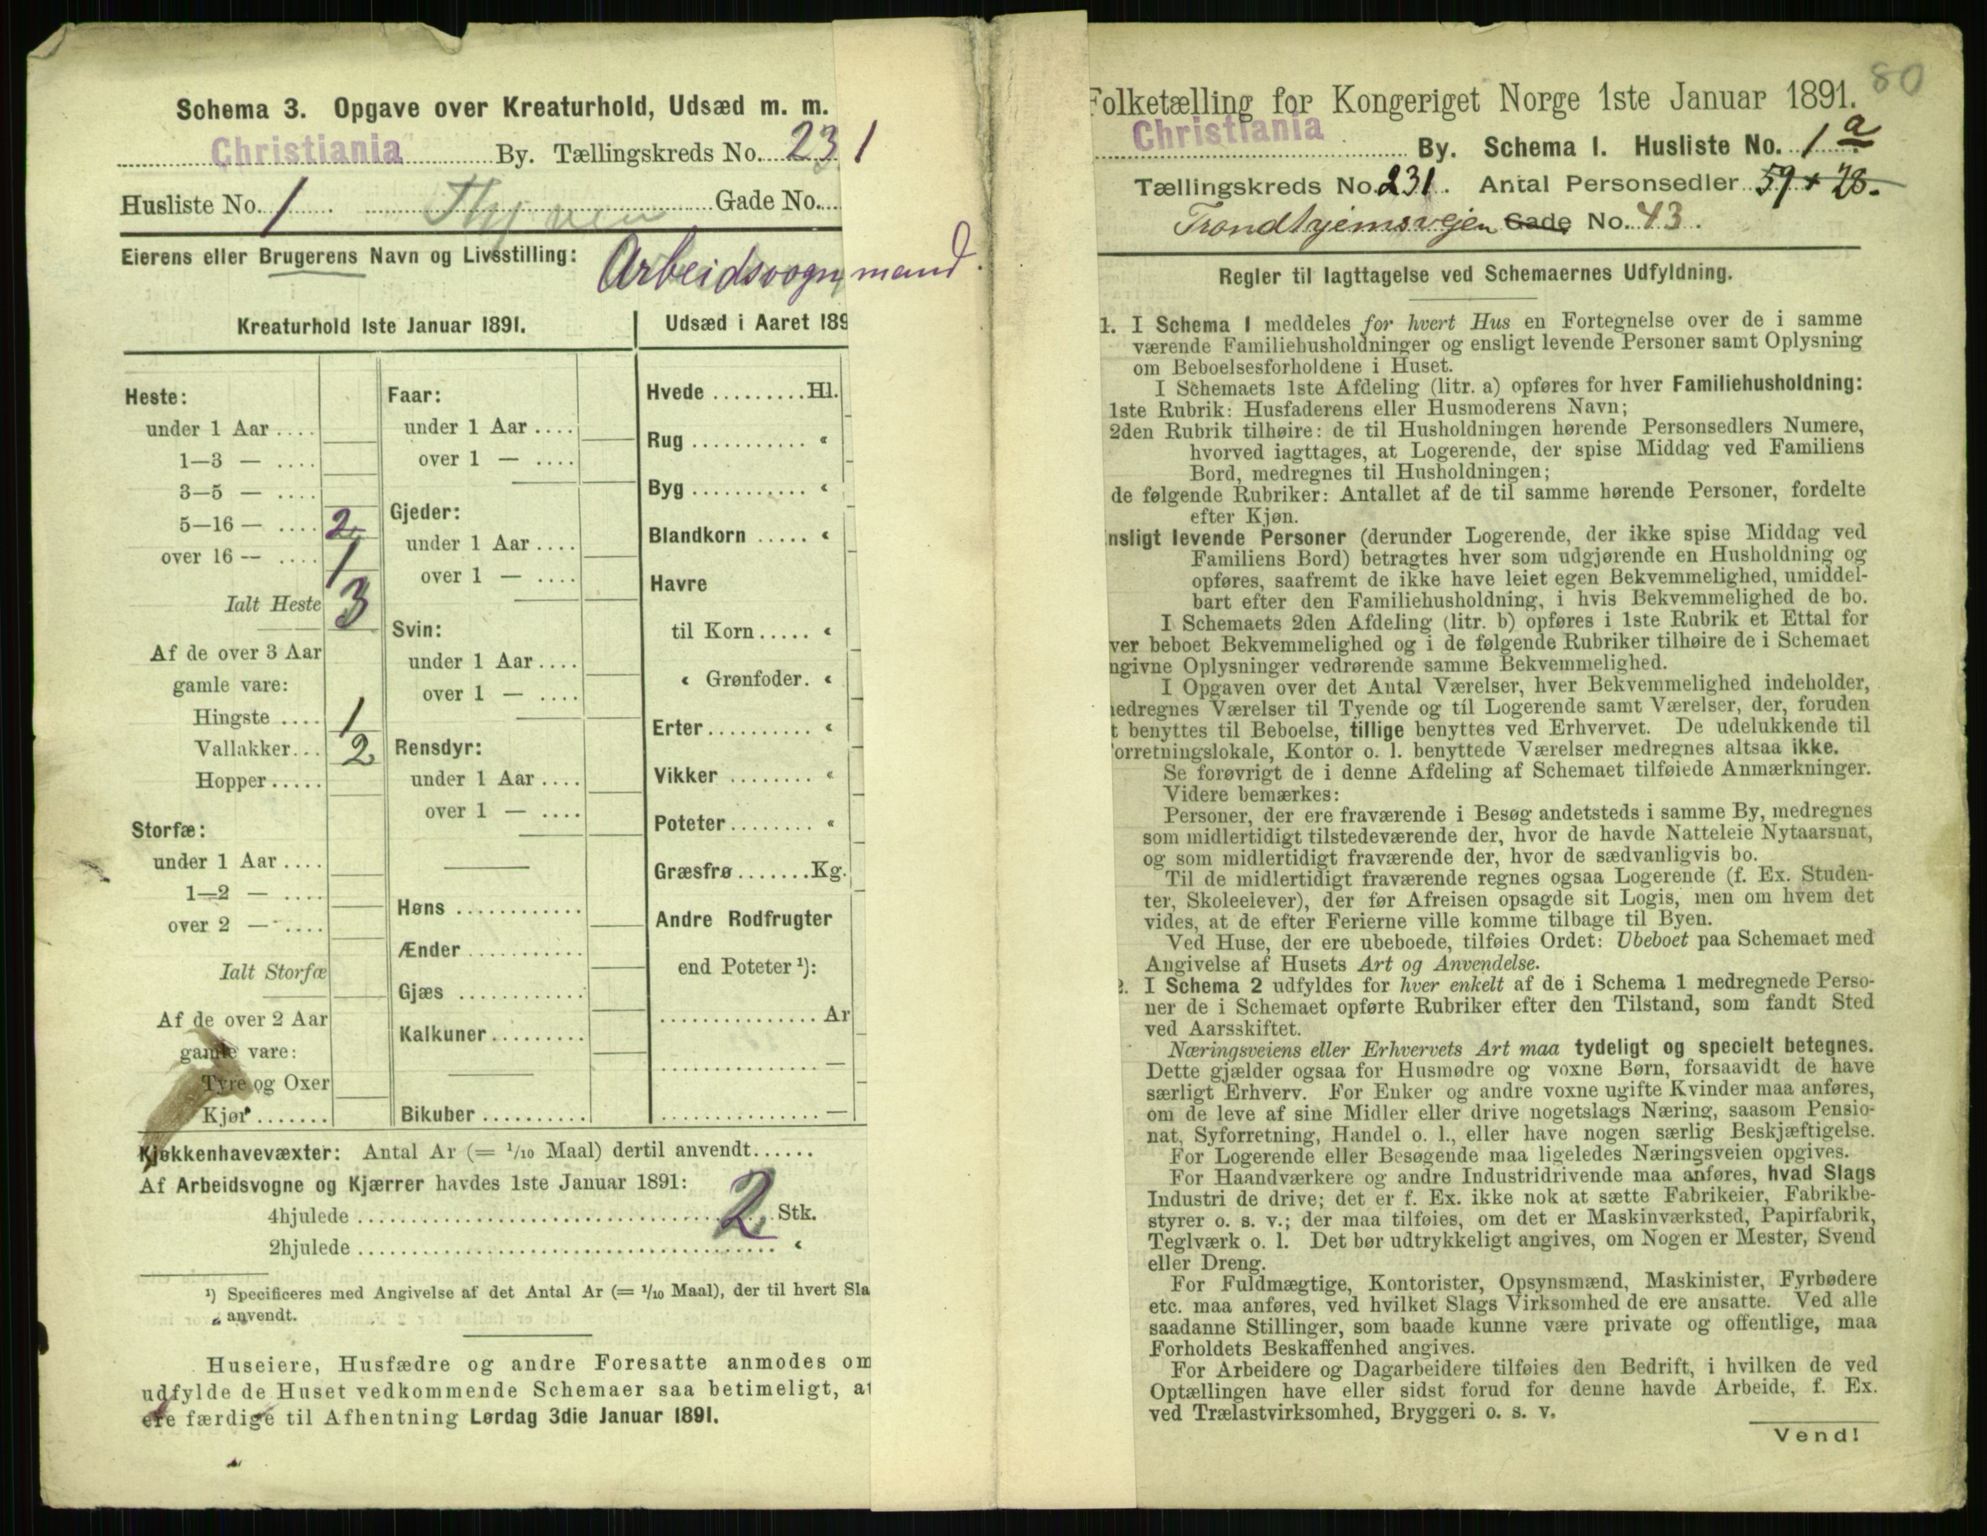 Schema 3. Opgave over Kreaturhold, Udsæd m. m.
Christiania By. Tællingskreds No. 231
Husliste No. 1 Gade No.
Eierens eller Brugerens Navn og Livsstilling: Arbeidsvognmand.
Kreaturhold 1ste Januar 1891.
Heste:
under 1 Aar ....
1—3 — ....
3—5 — ....
5—16 — .... 2
over 16 — .... 1
Ialt Heste 3
Af de over 3 Aar
gamle vare:
Hingste .... 1
Vallakker... 2
Hopper.....
Storfæ:
under 1 Aar ....
1—2 — ....
over 2 — ....
Ialt Storfæ
Af de over 2 Aar
gamle vare:
Tyre og Oxer
Kjør.......
Faar:
under 1 Aar ....
over 1 — ....
Gjeder:
under 1 Aar ....
over 1 — ....
Svin:
under 1 Aar ....
over 1 — ....
Rensdyr:
under 1 Aar ....
over 1 — ....
Høns ............
Ænder ...........
Gjæs ............
Kalkuner.........
Bikuber ..........
Udsæd i Aaret 189
Hvede .........Hl.
Rug ........... «
Byg ........... «
Blandkorn ..... «
Havre
til Korn..... «
« Grønfoder. «
Erter.......... «
Vikker ........ «
Poteter........ «
Græsfrø.......Kg.
Andre Rodfrugter
end Poteter ¹):
............... Ar
............... —
............... —
Kjøkkenhavevæxter: Antal Ar (= 1/10 Maal) dertil anvendt......
Af Arbeidsvogne og Kjærrer havdes 1ste Januar 1891:
4hjulede .......... 2 Stk.
2hjulede .......... «
¹) Specificeres med Angivelse af det Antal Ar (= 1/10 Maal), der til hvert Sla
anvendt.
Huseiere, Husfædre og andre Foresatte anmodes om
udfylde de Huset vedkommende Schemaer saa betimeligt, at
ere færdige til Afhentning Lørdag 3die Januar 1891.
80
Folketælling for Kongeriget Norge 1ste Januar 1891.
Christiania By. Schema 1. Husliste No. 1 a
Tællingskreds No. 231. Antal Personsedler 59 + 28.
Trondhjemsvejen Gade No. 43.
Regler til Iagttagelse ved Schemaernes Udfyldning.
1. I Schema 1 meddeles for hvert Hus en Fortegnelse over de i samme
værende Familiehusholdninger og ensligt levende Personer samt Oplysning
om Beboelsesforholdene i Huset.
I Schemaets 1ste Afdeling (litr. a) opføres for hver Familiehusholdning:
1ste Rubrik: Husfaderens eller Husmoderens Navn;
2den Rubrik tilhøire: de til Husholdningen hørende Personsedlers Numere,
hvorved iagttages, at Logerende, der spise Middag ved Familiens
Bord, medregnes til Husholdningen;
de følgende Rubriker: Antallet af de til samme hørende Personer, fordelte
efter Kjøn.
nsligt levende Personer (derunder Logerende, der ikke spise Middag ved
Familiens Bord) betragtes hver som udgjørende en Husholdning og
opføres, saafremt de ikke have leiet egen Bekvemmelighed, umiddel-
bart efter den Familiehusholdning, i hvis Bekvemmelighed de bo.
I Schemaets 2den Afdeling (litr. b) opføres i 1ste Rubrik et Ettal for
ver beboet Bekvemmelighed og i de følgende Rubriker tilhøire de i Schemaet
ngivne Oplysninger vedrørende samme Bekvemmelighed.
I Opgaven over det Antal Værelser, hver Bekvemmelighed indeholder,
nedregnes Værelser til Tyende og til Logerende samt Værelser, der, foruden
t benyttes til Beboelse, tillige benyttes ved Erhvervet. De udelukkende til
orretningslokale, Kontor o. l. benyttede Værelser medregnes altsaa ikke.
Se forøvrigt de i denne Afdeling af Schemaet tilføiede Anmærkninger.
Videre bemærkes:
Personer, der ere fraværende i Besøg andetsteds i samme By, medregnes
som midlertidigt tilstedeværende der, hvor de havde Natteleie Nytaarsnat,
og som midlertidigt fraværende der, hvor de sædvanligvis bo.
Til de midlertidigt fraværende regnes ogsaa Logerende (f. Ex. Studen-
ter, Skoleelever), der før Afreisen opsagde sit Logis, men om hvem det
vides, at de efter Ferierne ville komme tilbage til Byen.
Ved Huse, der ere ubeboede, tilføies Ordet: Ubeboet paa Schemaet med
Angivelse af Husets Art og Anvendelse.
2. I Schema 2 udfyldes for hver enkelt af de i Schema 1 medregnede Perso-
ner de i Schemaet opførte Rubriker efter den Tilstand, som fandt Sted
ved Aarsskiftet.
Næringsveiens eller Erhvervets Art maa tydeligt og specielt betegnes.
Dette gjælder ogsaa for Husmødre og voxne Børn, forsaavidt de have
særligt Erhverv. For Enker og andre voxne ugifte Kvinder maa anføres,
om de leve af sine Midler eller drive nogetslags Næring, saasom Pensio-
nat, Syforretning, Handel o. l., eller have nogen særlig Beskjæftigelse.
For Logerende eller Besøgende maa ligeledes Næringsveien opgives.
For Haandværkere og andre Industridrivende maa anføres, hvad Slags
Industri de drive; det er f. Ex. ikke nok at sætte Fabrikeier, Fabrikbe-
styrer o. s. v.; der maa tilføies, om det er Maskinværksted, Papirfabrik,
Teglværk o. l. Det bør udtrykkeligt angives, om Nogen er Mester, Svend
eller Dreng.
For Fuldmægtige, Kontorister, Opsynsmænd, Maskinister, Fyrbødere
etc. maa anføres, ved hvilket Slags Virksomhed de ere ansatte. Ved alle
saadanne Stillinger, som baade kunne være private og offentlige, maa
Forholdets Beskaffenhed angives.
For Arbeidere og Dagarbeidere tilføies den Bedrift, i hvilken de ved
Optællingen have eller sidst forud for denne havde Arbeide, f. Ex.
ved Trælastvirksomhed, Bryggeri o. s. v.
Vend!